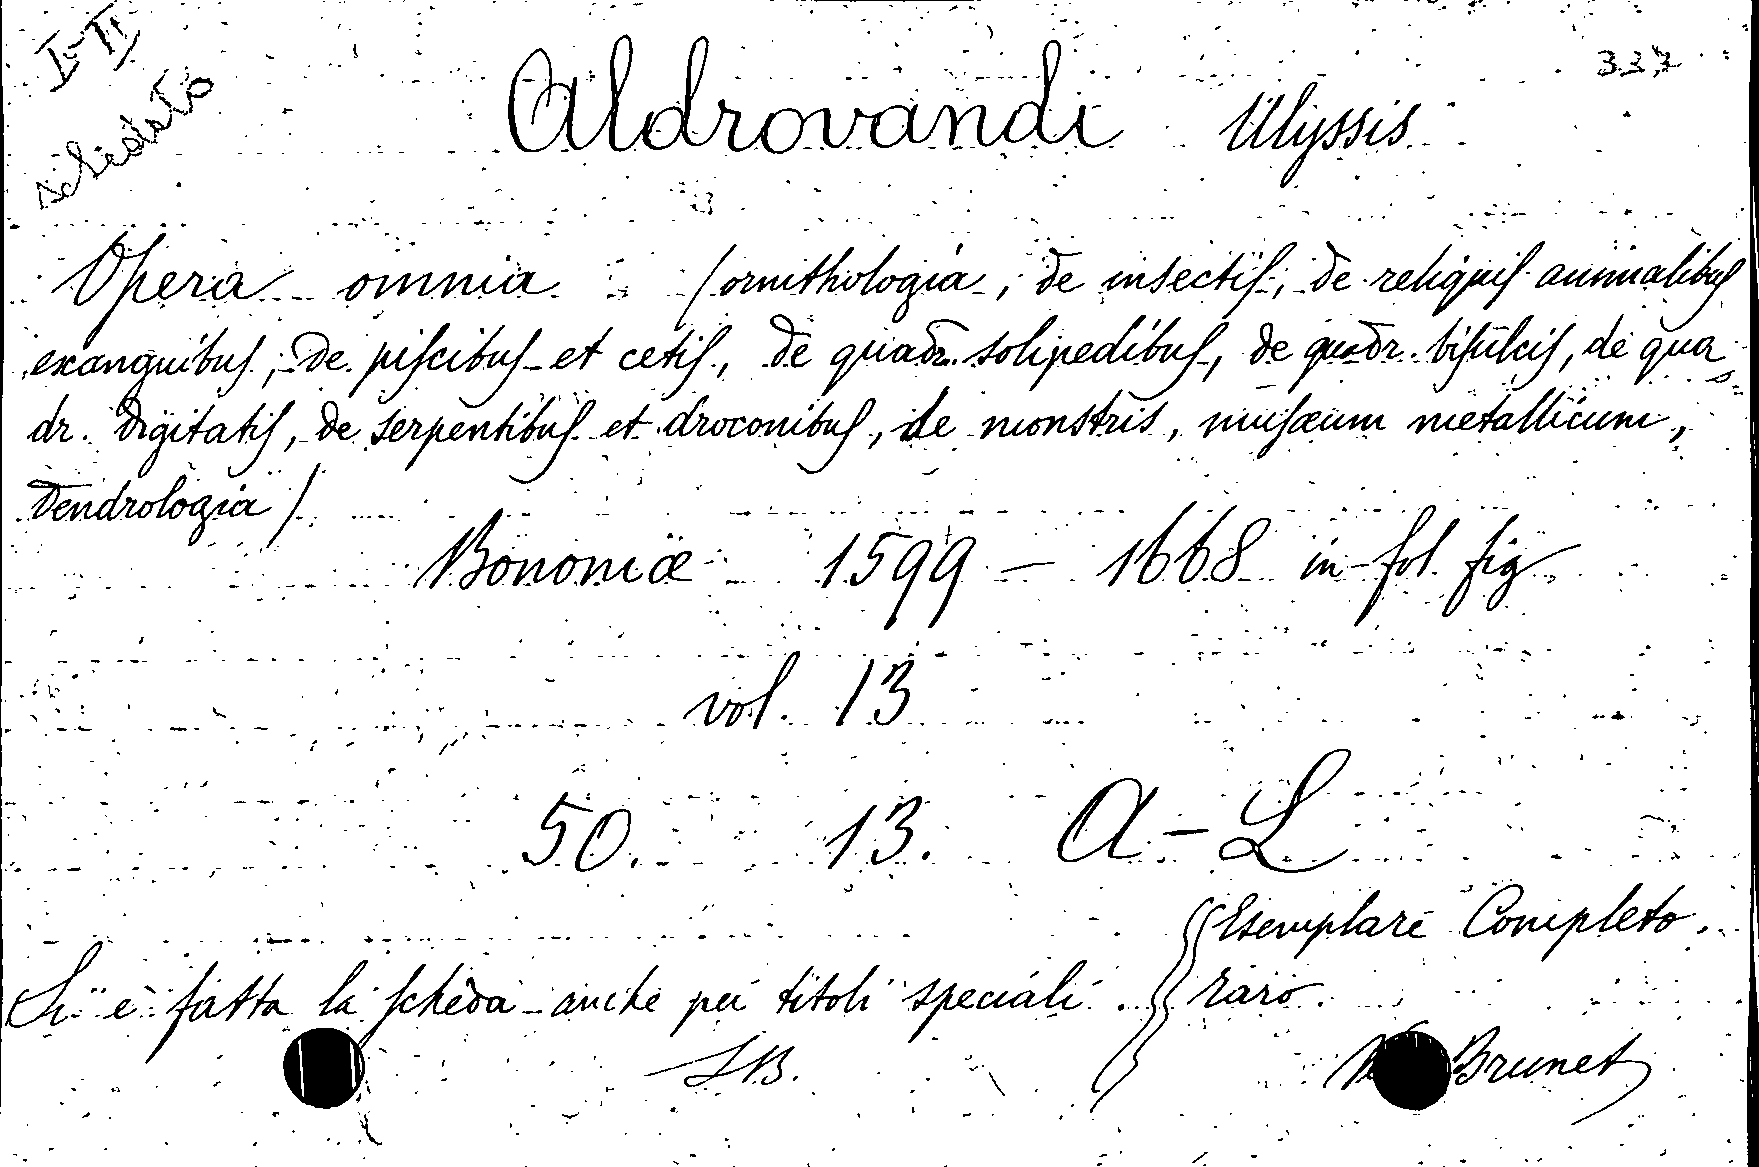 I-II
schedato
337
Aldrovandi Ulyssis
Opera omnia (ornithologia, de insectis, de reliquis animalibus
exanguibus, de piscibus et cetis, de quadr. solipedibus, de quadr. bisulcis, de qua=
dr. digitatis, de serpentibus et draconibus, de monstris, musæum metallicum,
dendrologia)
Bononiæ 1599 — 1668 in fol. fig
vol. 13
50. 13. A-L
Esemplare Completo.
Si è fatta la scheda anche pei titoli speciali. raro.
Brunet